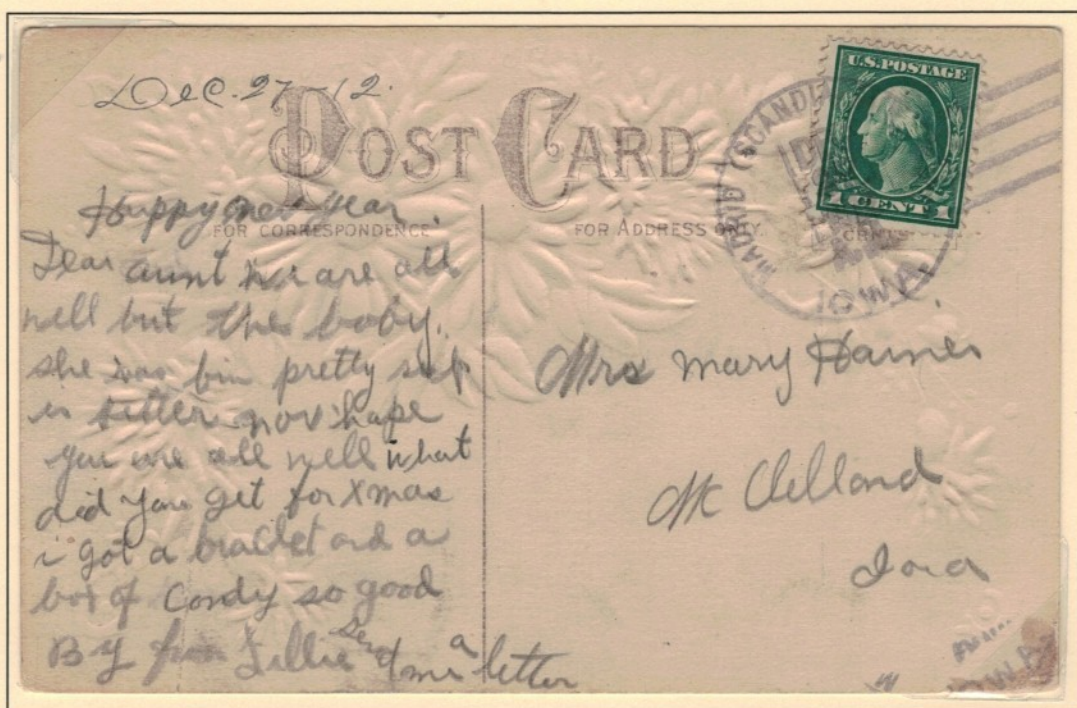 Dec. 27-12.
POST CARD
U.S. POSTAGE
1 CENT 1
MADRID (SCANDI
IOWA
Happy new year.
FOR CORRESPONDENCE
FOR ADDRESS ONLY.
Dear aunt we are all
well but the baby.
she was bin pretty sick
is better now hope
you are all well what
did you get for Xmas
i got a braclet and a
box of Candy so good
By from Lillie Send me a letter
Mrs Mary Haines
Mc Clelland
Iowa
IOWA